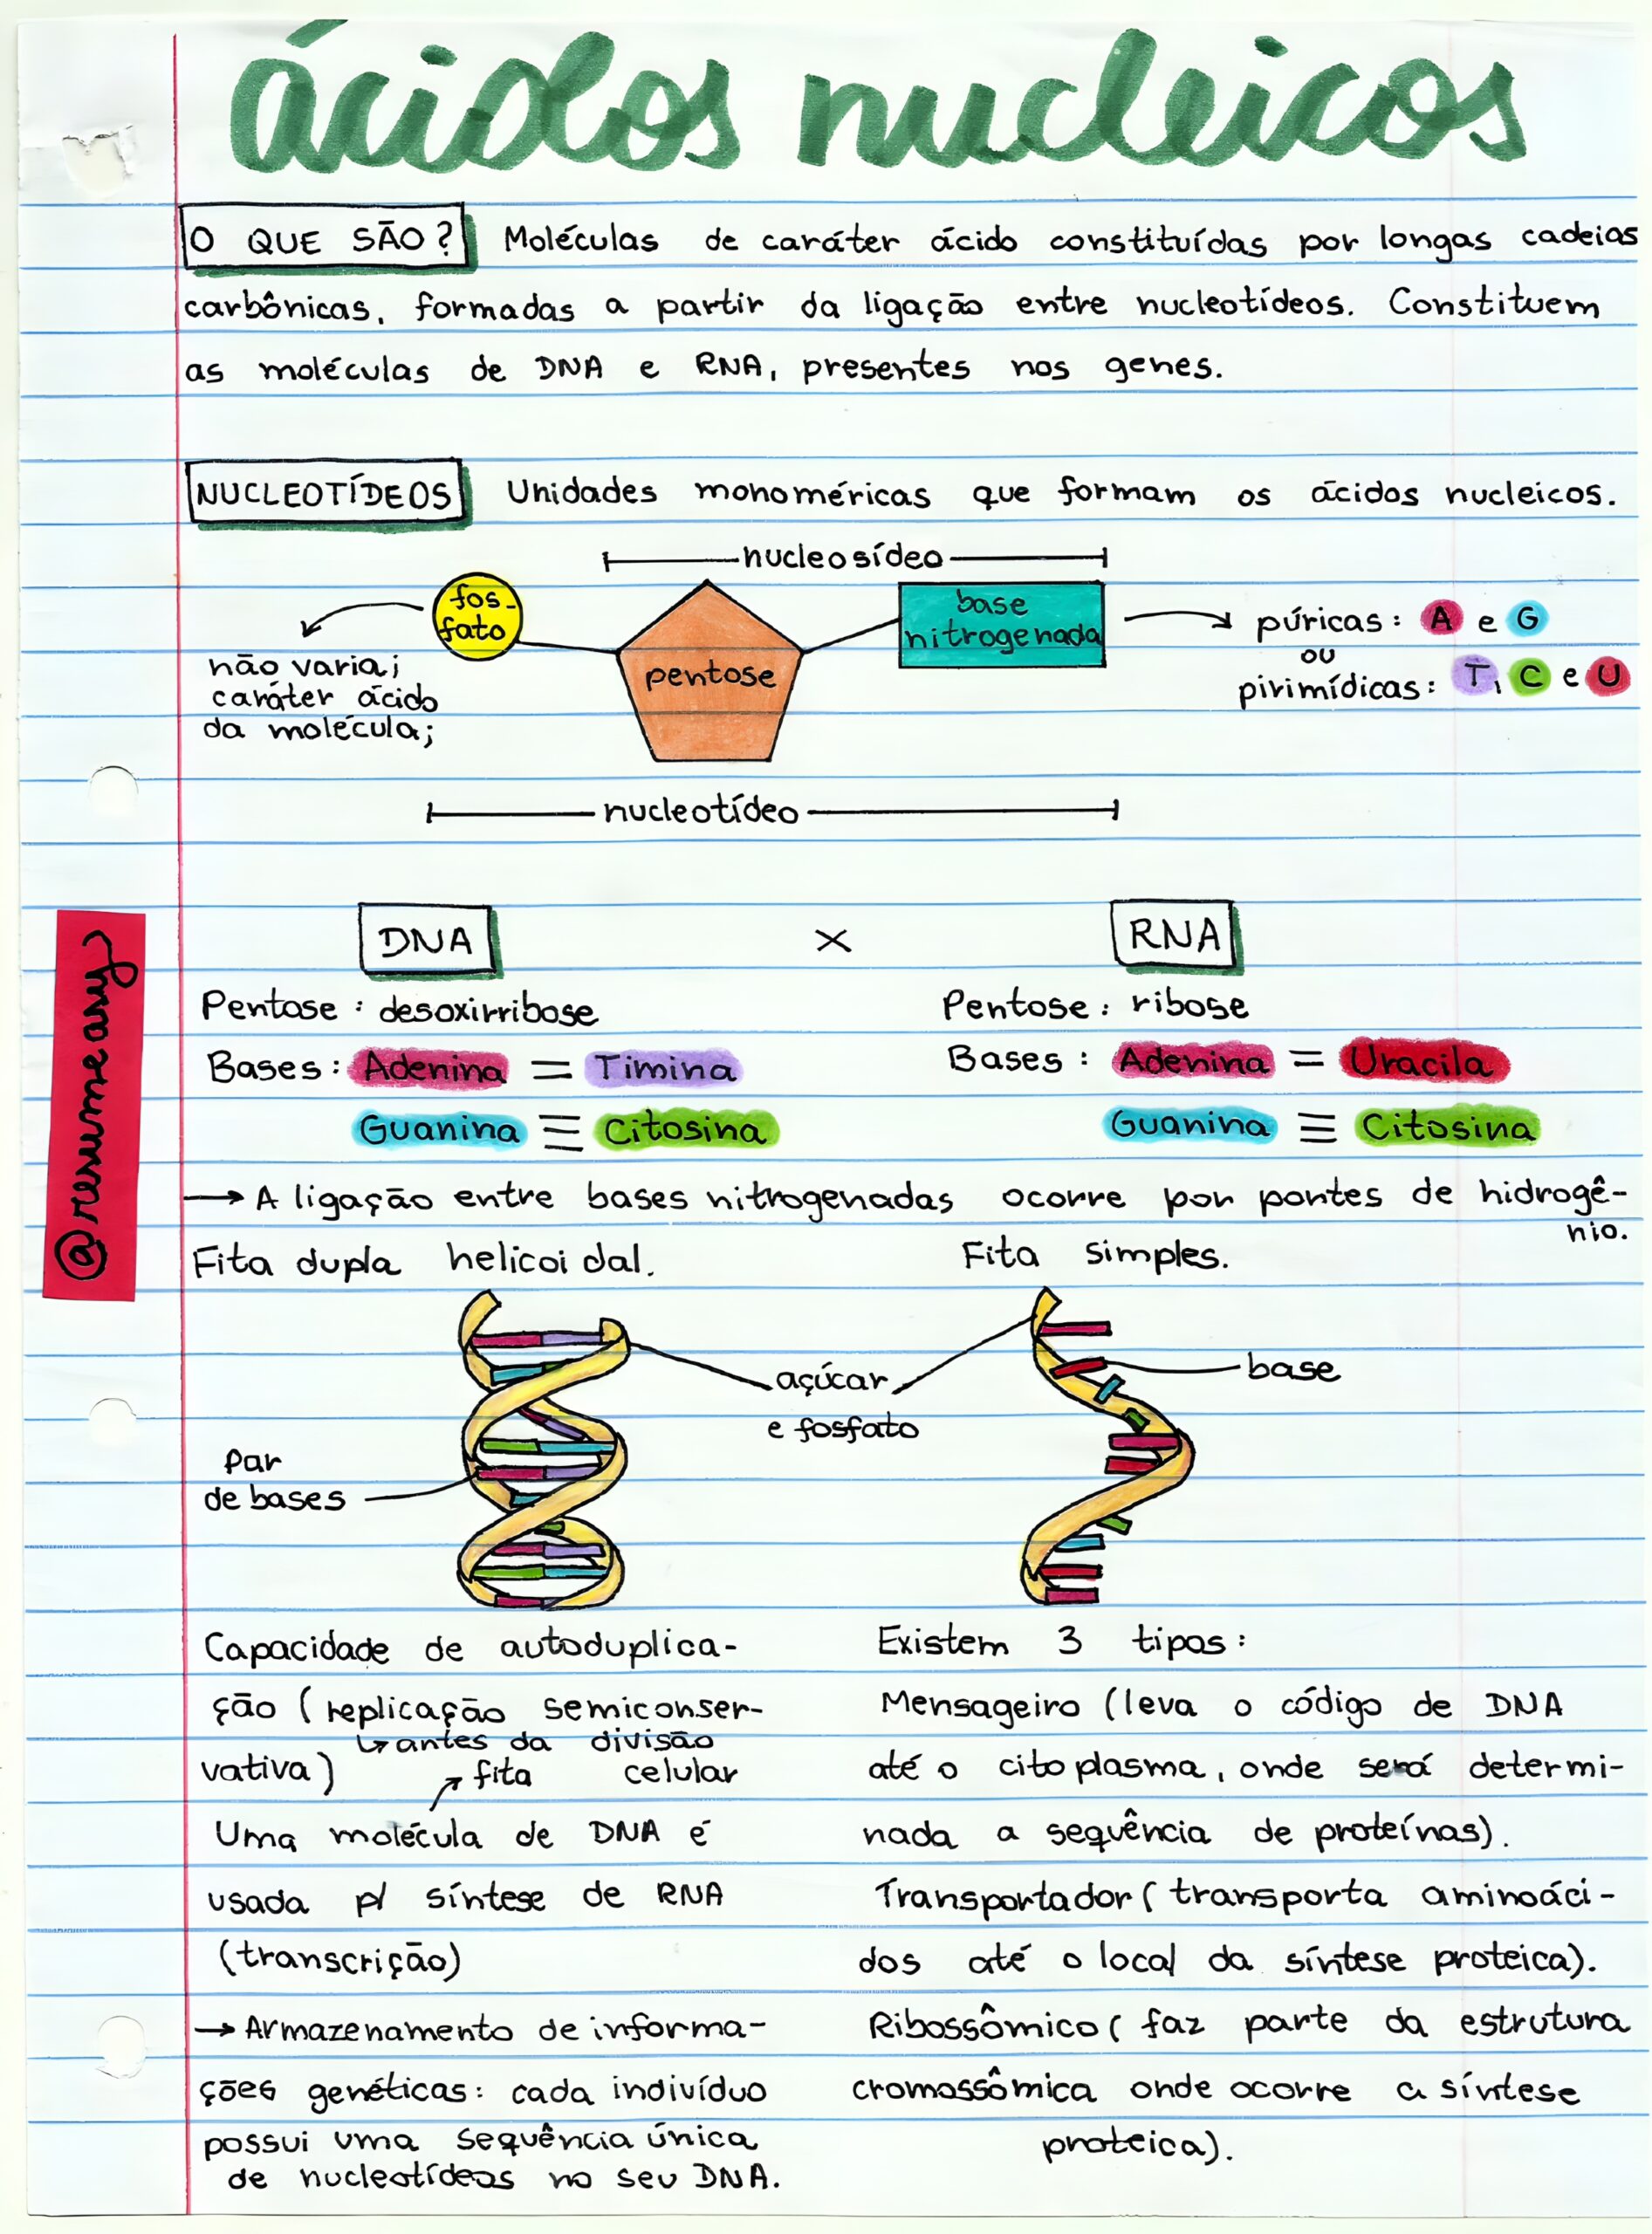 ácidos nucleicos
O QUE SÃO? Moléculas de caráter ácido constituídas por longas cadeias
carbônicas, formadas a partir da ligação entre nucleotídeos. Constituem
as moléculas de DNA e RNA, presentes nos genes.
NUCLEOTÍDEOS Unidades monoméricas que formam os ácidos nucleicos.
nucleosídeo
fos-
fato
pentose
base
nitrogenada
não varia;
caráter ácido
da molécula;
púricas: A e G
ou
pirimídicas: T, C e U
nucleotídeo
DNA × RNA
Pentose: desoxirribose
Bases: Adenina = Timina
Guanina ≡ Citosina
Pentose: ribose
Bases: Adenina = Uracila
Guanina ≡ Citosina
@resumeany
→ A ligação entre bases nitrogenadas ocorre por pontes de hidrogê-
nio.
Fita dupla helicoidal.
Fita simples.
açúcar
e fosfato
base
Par
de bases
Capacidade de autoduplica-
ção (replicação semiconser-
↳ antes da divisão
celular
vativa)
↗ fita
Uma molécula de DNA é
usada p/ síntese de RNA
(transcrição)
→ Armazenamento de informa-
ções genéticas: cada indivíduo
possui uma sequência única
de nucleotídeos no seu DNA.
Existem 3 tipos:
Mensageiro (leva o código de DNA
até o citoplasma, onde será determi-
nada a sequência de proteínas).
Transportador (transporta aminoáci-
dos até o local da síntese proteica).
Ribossômico (faz parte da estrutura
cromossômica onde ocorre a síntese
proteica).